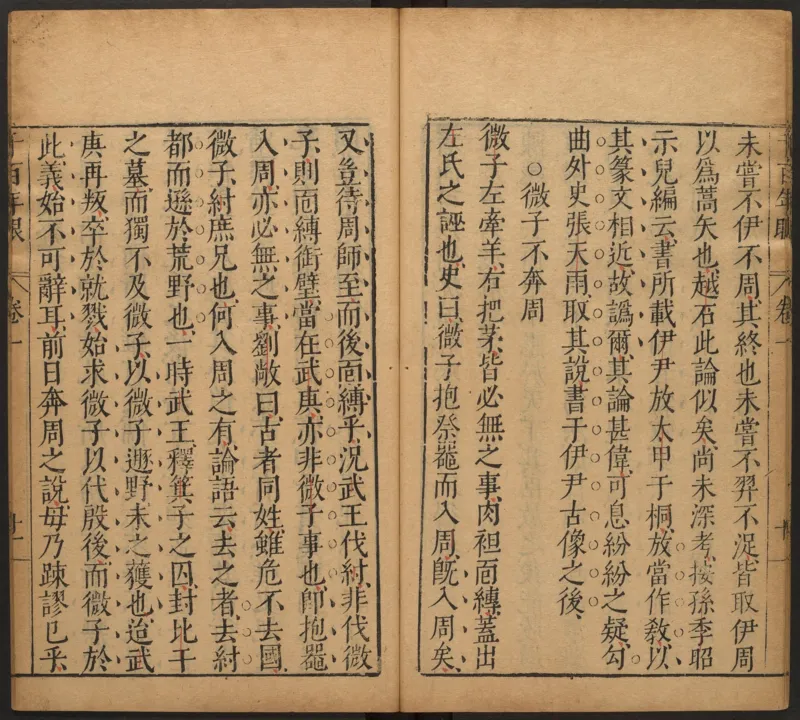 未嘗不伊不周其終也未嘗不羿不浞皆取伊周
以爲蒿矢也越石此論似矣尚未深考按孫季昭
示兒編云書所載伊尹放太甲于桐放當作敎以
其篆文相近故譌爾其論甚偉可息紛紛之疑勾
曲外史張天雨取其說書于伊尹古像之後
○微子不奔周
微子左牽羊右把茅皆必無之事肉袒面縛蓋出
左氏之誣也史曰微子抱祭器而入周旣入周矣
又豈待周師至而後面縛乎況武王伐紂非伐微
子則面縛銜璧當在武庚亦非微子事也卽抱器
入周亦必無之事劉敞曰古者同姓雖危不去國
微子紂庶兄也何入周之有論語云去之者去紂
都而遜於荒野也一時武王釋箕子之囚封比干
之墓而獨不及微子以微子遯野未之獲也迨武
庚再叛卒於就戮始求微子以代殷後而微子於
此義始不可辭耳前日奔周之說毋乃踈謬已乎
百年眼
卷一